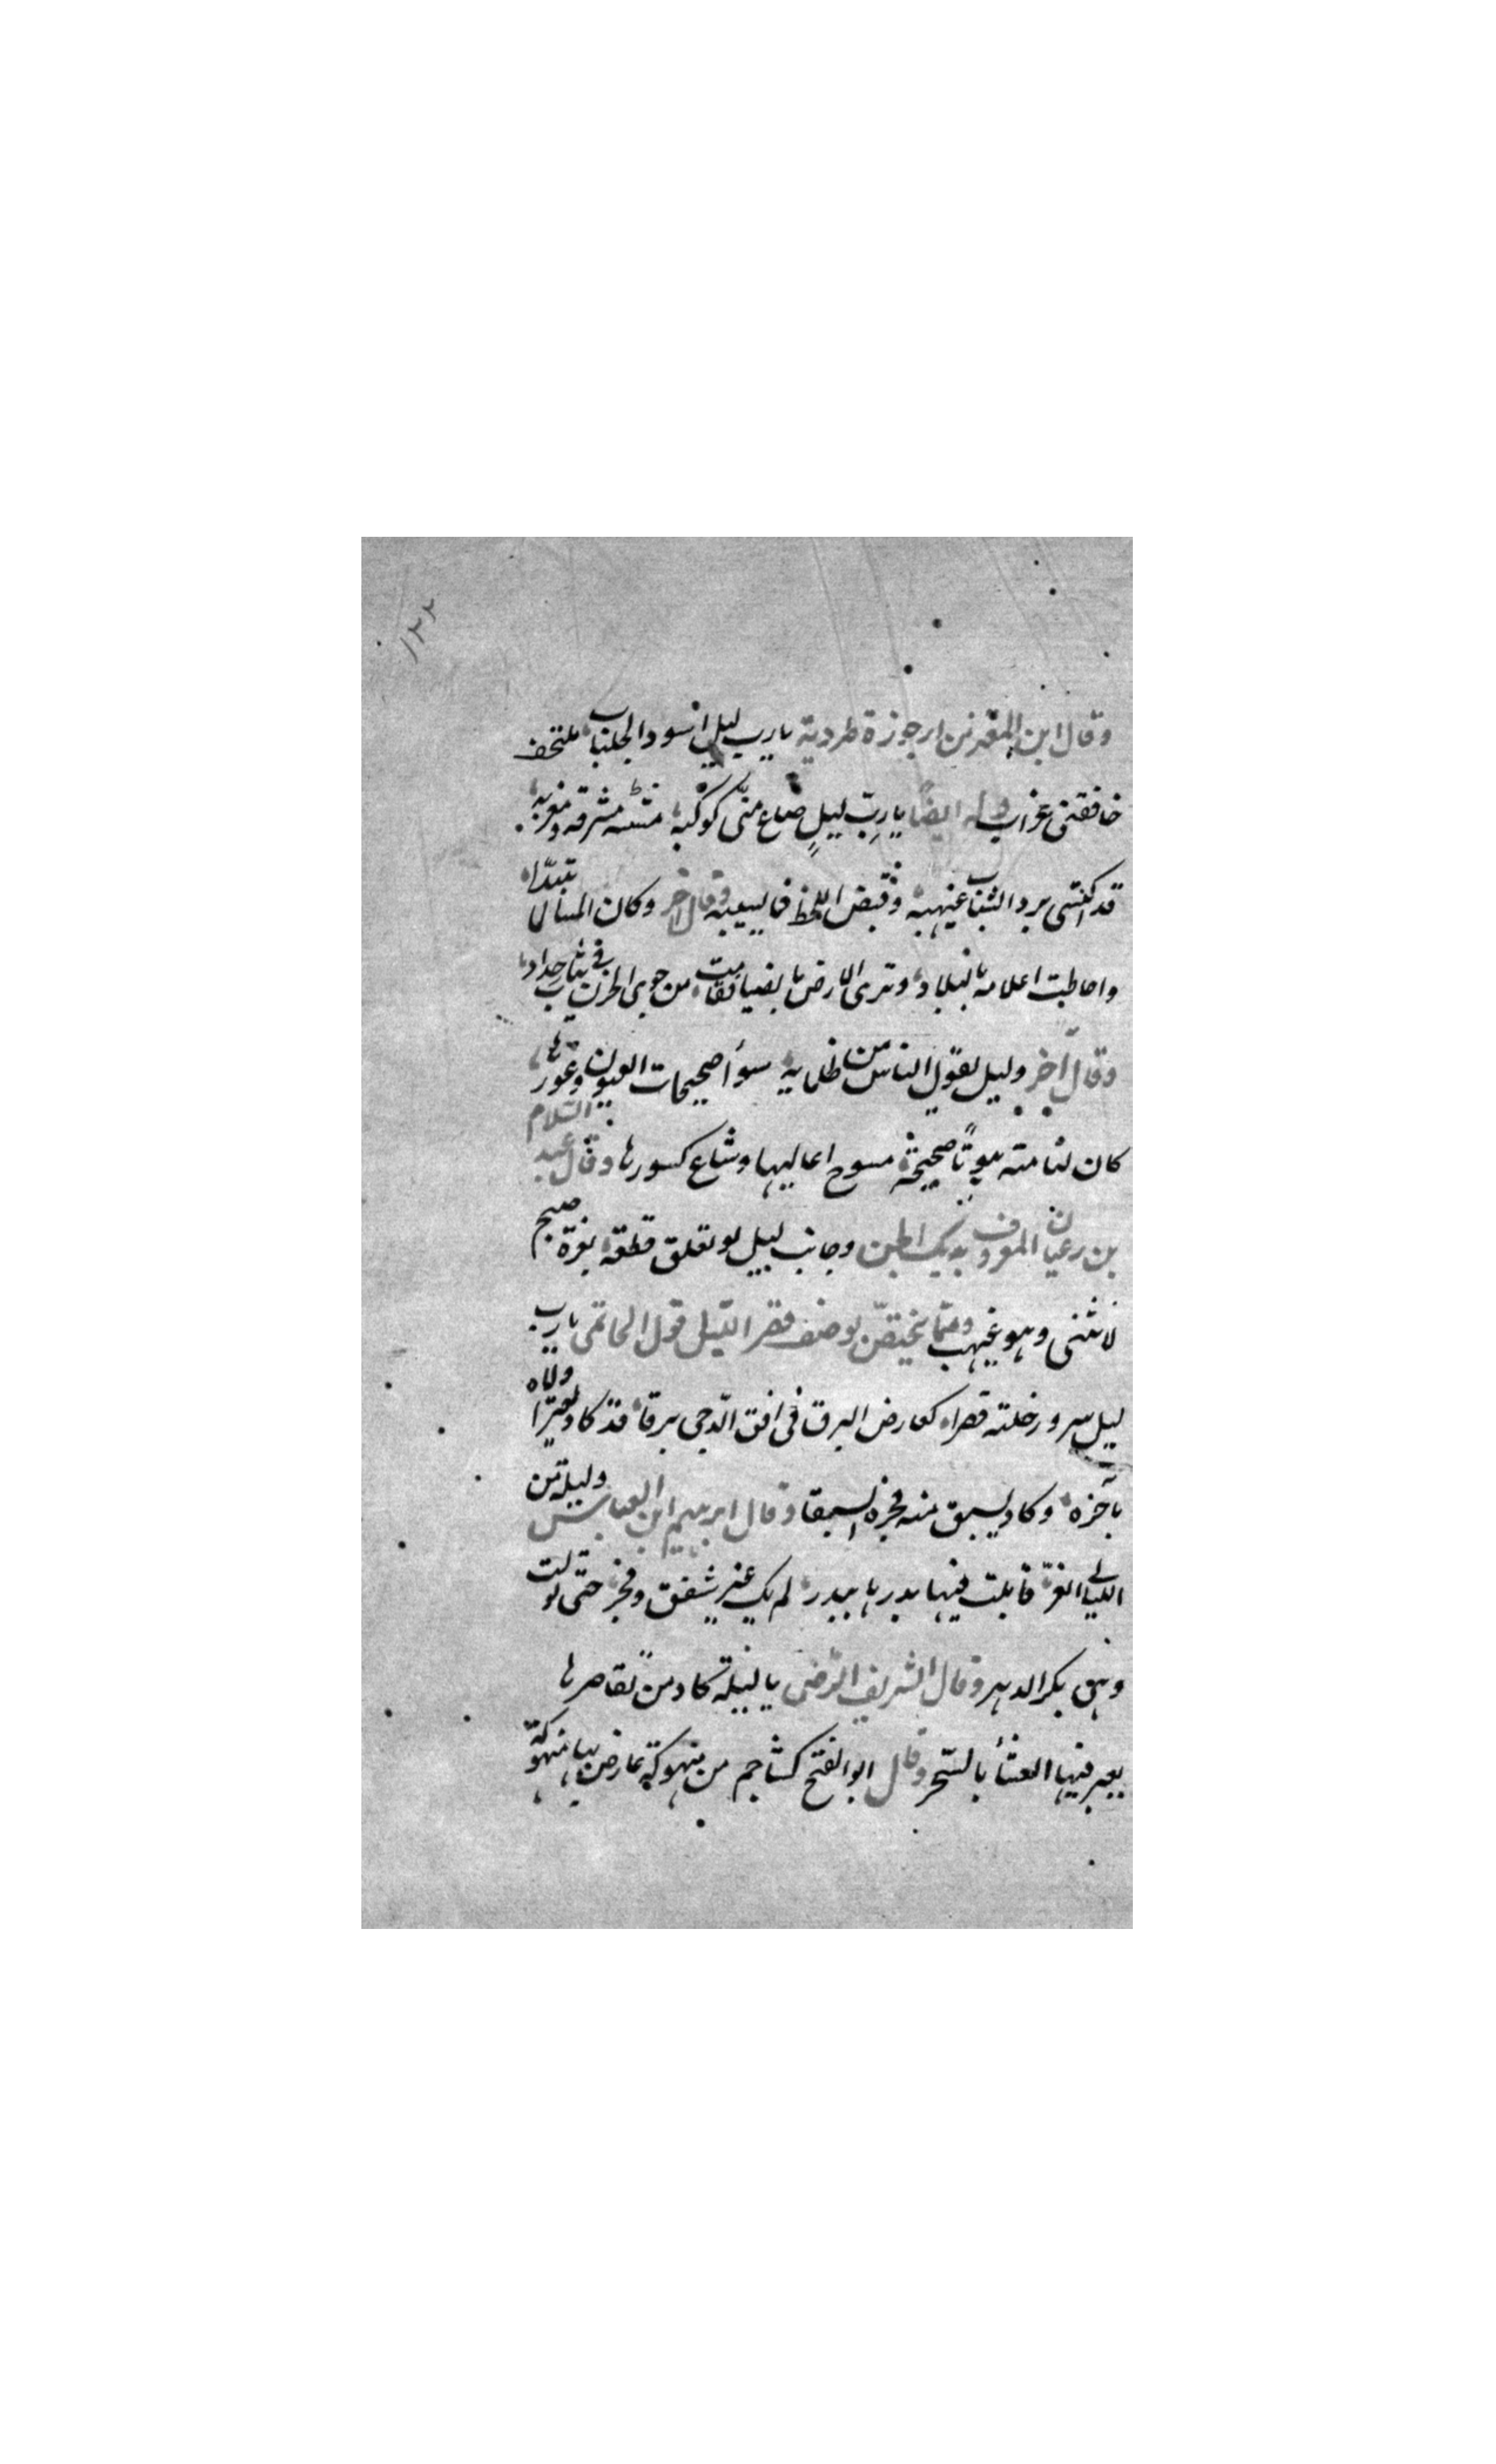 ١٢٢
وقال ابن المعتز من ارجوزة طردية يارب ليل اسود الجلباب ملتحف
خافقتى غراب وله ايضا يا ربّ ليلٍ ضاع منّى كوكبه مشرقه ومغربه
قد اكتسى برد الشباب غيهبه وقبض اللحظ فا يسيبه وقال آخر وكان تبدّا
واحاطت اعلامه بالبلاد وترى الارض بالضيا من جوى الحزن فى ثياب حداد
وقال آخر وليل يقول الناس من ظلمايه سوأ صحيحات العيون وعورها
كان لنا منه بيوتًا صحيحة مسوح اعاليها وشاع كسورها وقال عبد السلام
بن رغبان المعروف بديك الجن وجانب ليل لو تعلق قطعة بغرة صبح
لانثنى وهو غيهب وممّا يختصّ بوصف قصر الليل قول الحاتمى يا رب
ليل سرور خلته قصرا كعارض البرق فى افق الدّجى برقا قد كاد يعثر اولاه
بآخره وكاد يسبق منه فجره السبقا وقال ابرهيم ابن العباس وليلة من
الليالى الغرّ قابلت فيها بدرها ببدر لم يك غير شفق وفجر حتى تولت
وهى بكر الدهر وقال الشريف الرّضى يا ليلة كاد من تقاصرها
يعبر فيها العشأ بالسّحر وقال ابو الفتح كشاجم من منهوكة عارض بها منهوكة